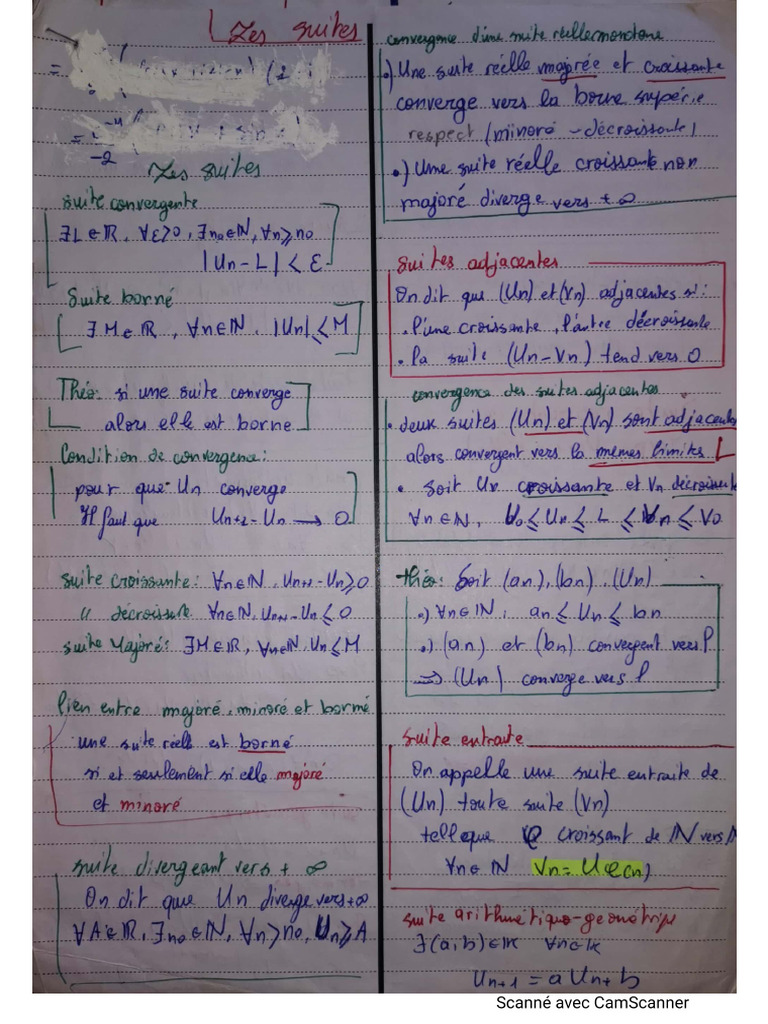 Les suites
Les suites
suite convergente
∃L∈ℝ, ∀ε>0, ∃n₀∈ℕ, ∀n⩾n₀
|Un-L| < ε
Suite borné
∃M∈ℝ, ∀n∈ℕ, |Un|⩽M
Théo: si une suite converge
alors elle est borne
Condition de convergence:
pour que Un converge
Il faut que Un+2-Un → 0
suite croissante: ∀n∈ℕ, Un+1-Un⩾0
" décroissante ∀n∈ℕ, Un+1-Un⩽0
suite Majoré: ∃M∈ℝ, ∀n∈ℕ, Un⩽M
lien entre majoré, minoré et borné
une suite réelle est borné
si et seulement si elle majoré
et minoré
suite divergeant vers +∞
On dit que Un diverge vers +∞
∀A∈ℝ, ∃n₀∈ℕ, ∀n>n₀, Un⩾A
convergence d'une suite réelle monotone
•) Une suite réelle majorée et croissante
converge vers la borne supérie
respect (minoré - décroissante)
•) Une suite réelle croissante non
majoré diverge vers +∞
suites adjacentes
On dit que (Un) et (Vn) adjacentes si:
• l'une croissante, l'autre décroissante
• la suite (Un-Vn) tend vers 0
convergence des suites adjacentes
• deux suites (Un) et (Vn) sont adjacentes
alors convergent vers la mêmes limites L
• Soit Un croissante et Vn décroissante
∀n∈ℕ, U₀⩽Un⩽L⩽Vn⩽V₀
théo: Soit (an), (bn), (Un)
•) ∀n∈ℕ, an⩽Un⩽bn
•) (an) et (bn) convergent vers l
⇒ (Un) converge vers l
suite extraite
On appelle une suite extraite de
(Un) toute suite (Vn)
telle que φ croissant de ℕ vers ℕ
∀n∈ℕ Vn = Uφ(n)
suite arithmético-géométriqe
∃(a,b)∈K ∀n∈K
Un+1 = aUn+b
Scanné avec CamScanner